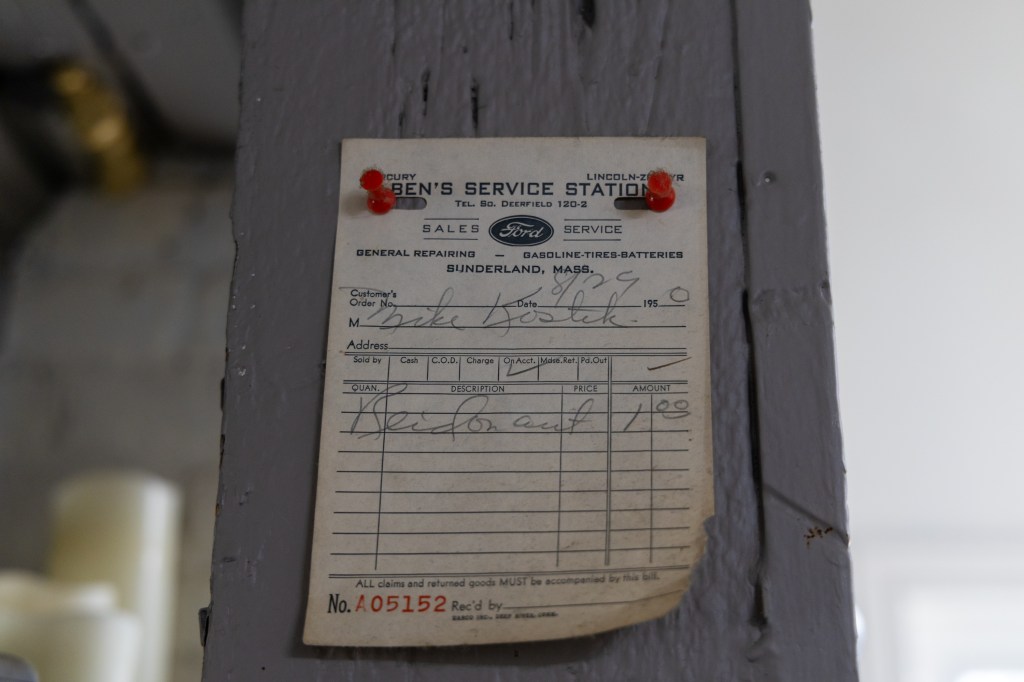 CURY LINCOLN-Z YR
BEN'S SERVICE STATION
TEL. SO. DEERFIELD 120-2
SALES Ford SERVICE
GENERAL REPAIRING — GASOLINE-TIRES-BATTERIES
SUNDERLAND, MASS.
Customer's
Order No. Date 8/29 1950
M Mike Kostek
Address
Sold by Cash C.O.D. Charge On Acct. Mdse. Ret. Pd. Out
QUAN. DESCRIPTION PRICE AMOUNT
Paid on 1 00
ALL claims and returned goods MUST be accompanied by this bill.
No. A05152 Rec'd by